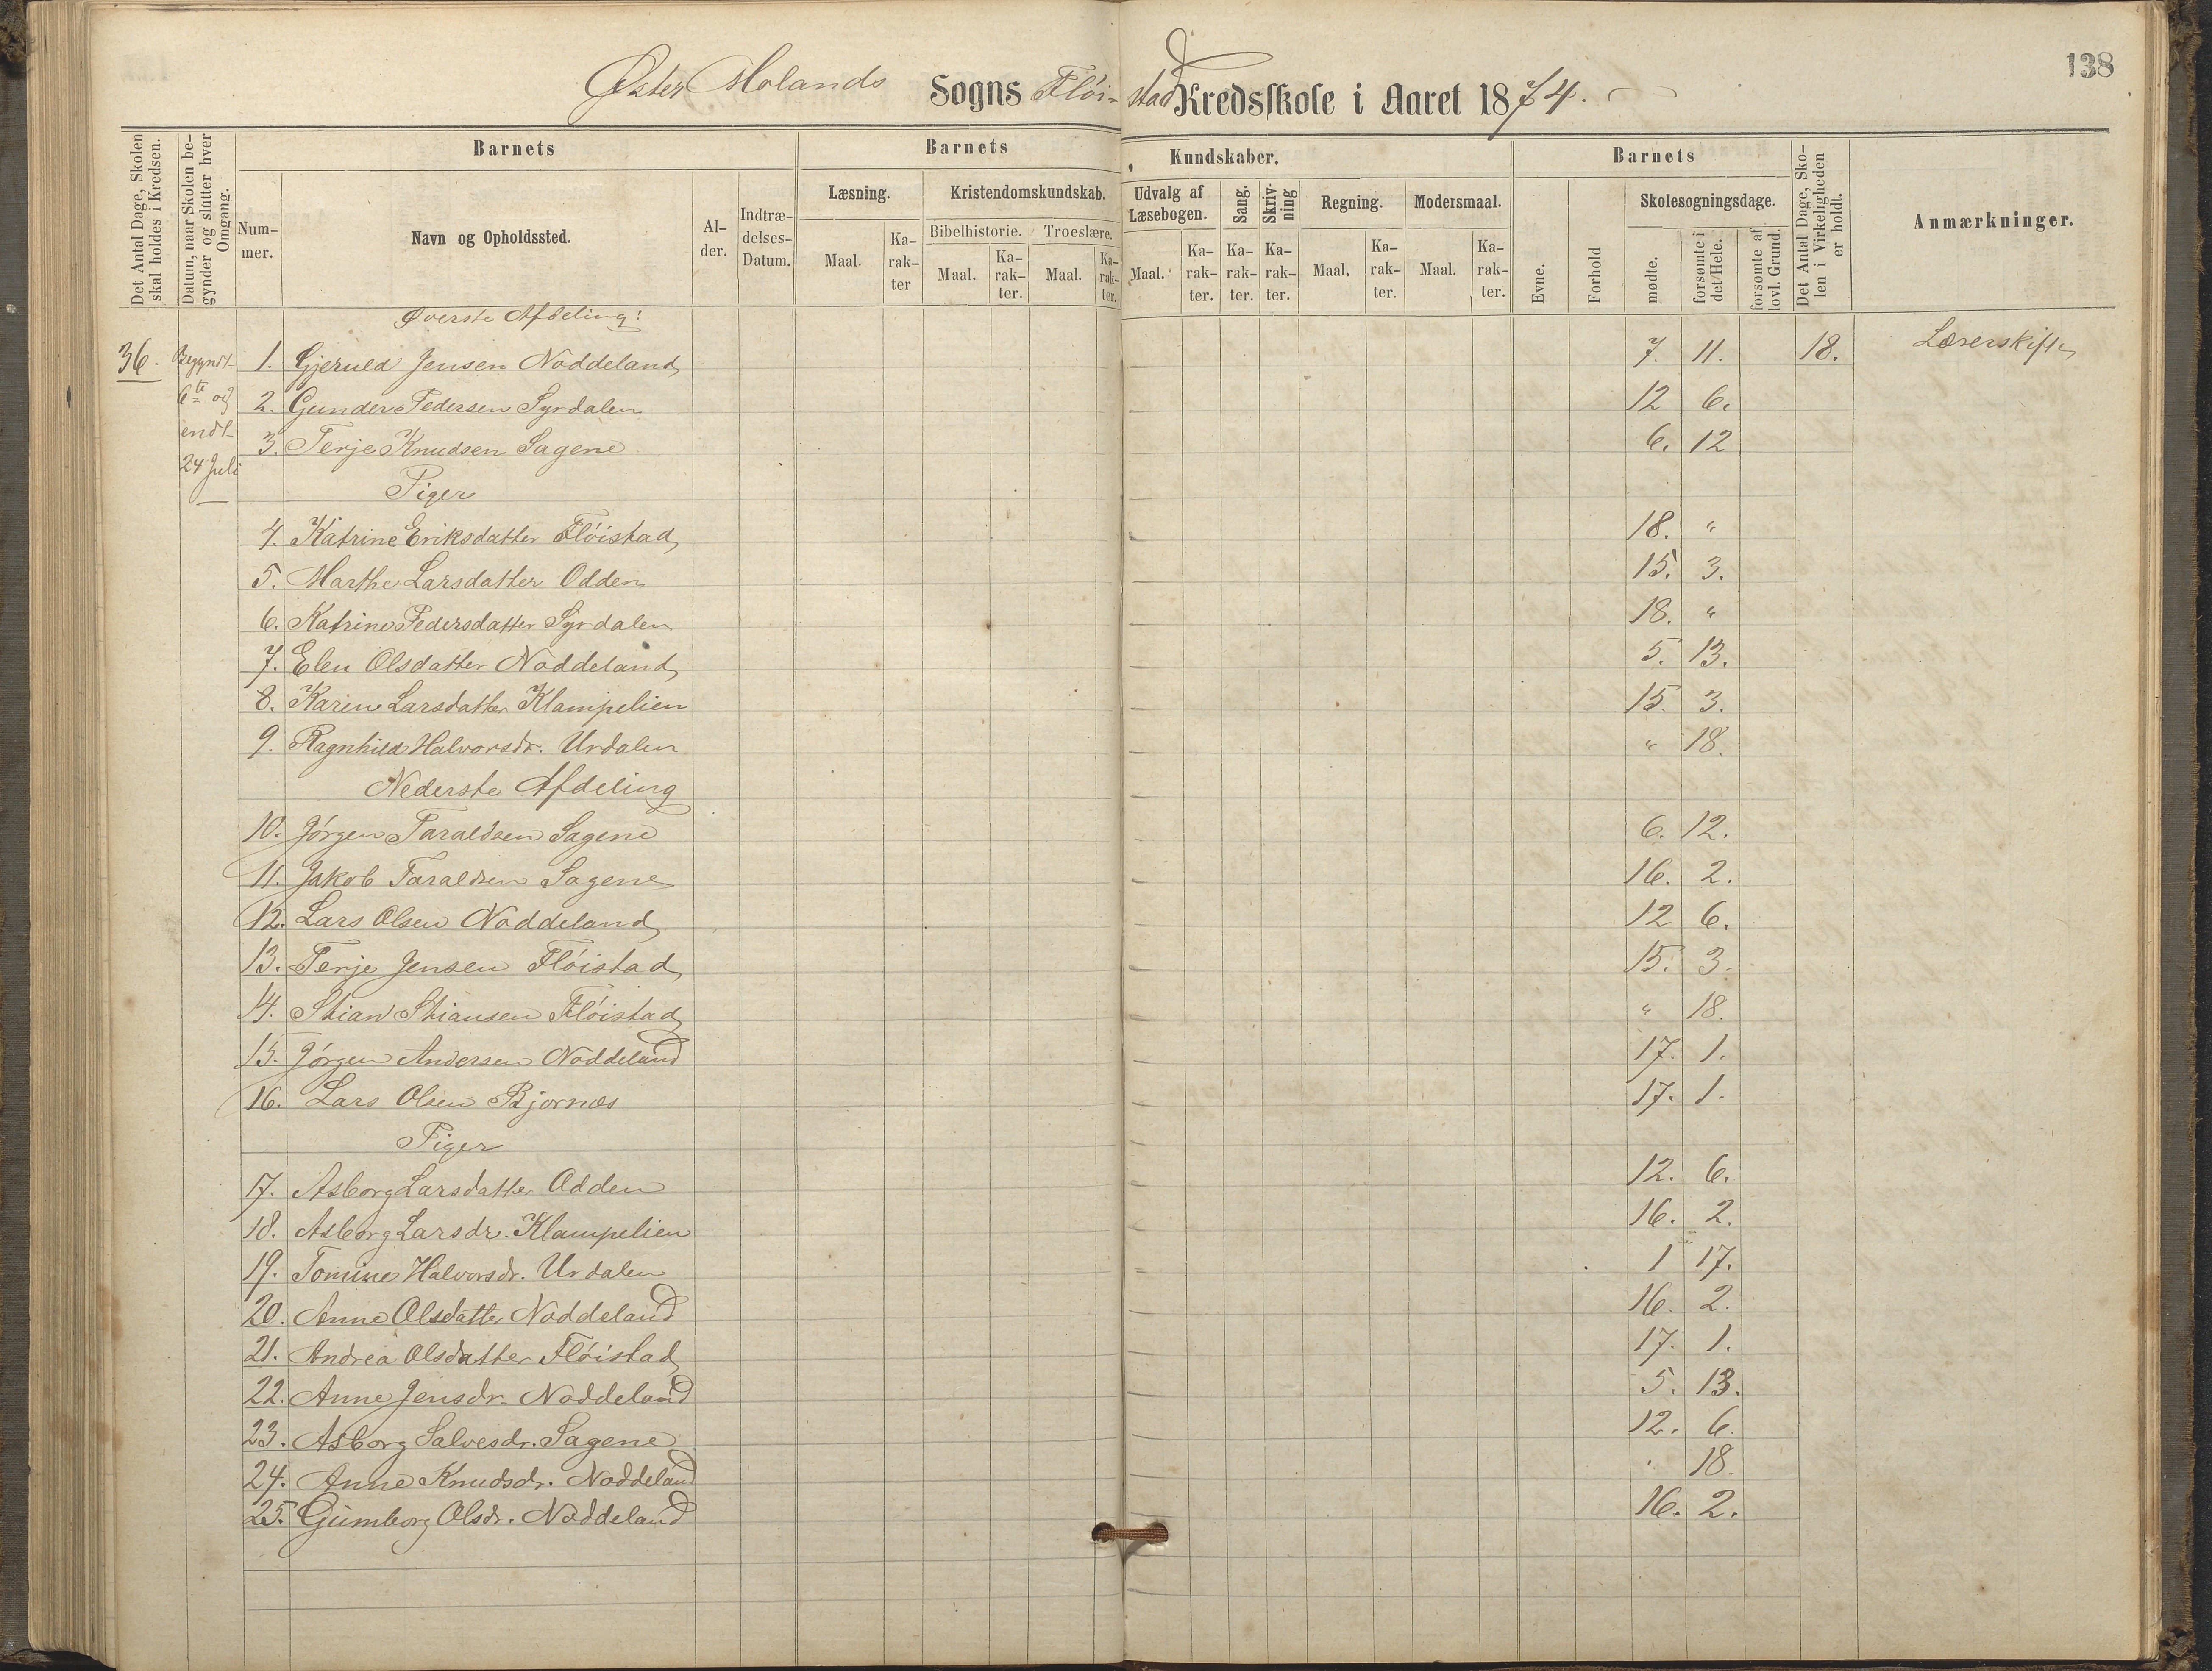 138
Øster Molands Sogns Flöistad Kredsskole i Aaret 1874.
Det Antal Dage, Skolen skal holdes i Kredsen.
Datum, naar Skolen begynder og slutter hver Omgang.
Barnets
Nummer.
Navn og Opholdssted.
Alder.
Indtrædelses-Datum.
Barnets Kundskaber.
Læsning.
Maal. Karakter
Kristendomskundskab.
Bibelhistorie. Troeslære.
Maal. Karakter. Maal. Karakter.
Udvalg af Læsebogen.
Maal. Karakter.
Sang.
Karakter.
Skrivning
Karakter.
Regning.
Maal. Karakter.
Modersmaal.
Maal. Karakter.
Barnets
Evne.
Forhold
Skolesøgningsdage.
mødte.
forsømte i det Hele.
forsømte af lovl. Grund.
Det Antal Dage, Skolen i Virkeligheden er holdt.
Anmærkninger.
Øverste Afdeling!
36. Begyndt 1. Gjeruld Jensen Noddeland 7. 11. 18. Lærerskifte
6te og 2. Gunder Pedersen Syrdalen 12 6.
endt 3. Terje Knudsen Sagene 6. 12
24 Juli
Piger
4. Katrine Eriksdatter Flöistad 18. "
5. Marthe Larsdatter Odden 15. 3.
6. Katrine Pedersdatter Syrdalen 18. "
7. Elen Olsdatter Noddeland 5. 13.
8. Karine Larsdatter Klampelien 15. 3.
9. Ragnhild Halvorsdr. Urdalen " 18.
Nederste Afdeling
10. Jörgen Taraldsen Sagene 6. 12.
11. Jakob Taraldsen Sagene 16. 2.
12. Lars Olsen Noddeland 12 6.
13. Terje Jensen Flöistad 15. 3.
14. Stian Stiansen Flöistad " 18.
15. Jörgen Andersen Noddeland 17. 1.
16. Lars Olsen Bjornæs 17. 1.
Piger
17. Asborg Larsdatter Odden 12. 6.
18. Asborg Larsdr. Klampelien 16. 2.
19. Tomine Halvorsdr. Urdalen 1 17.
20. Anne Olsdatter Noddeland 16. 2.
21. Andrea Olsdatter Flöistad 17. 1.
22. Anne Jensdr. Noddeland 5. 13.
23. Asborg Salvesdr. Sagene 12. 6.
24. Anne Knudsdr. Noddeland " 18.
25. Gumborg Olsdr. Noddeland 16. 2.